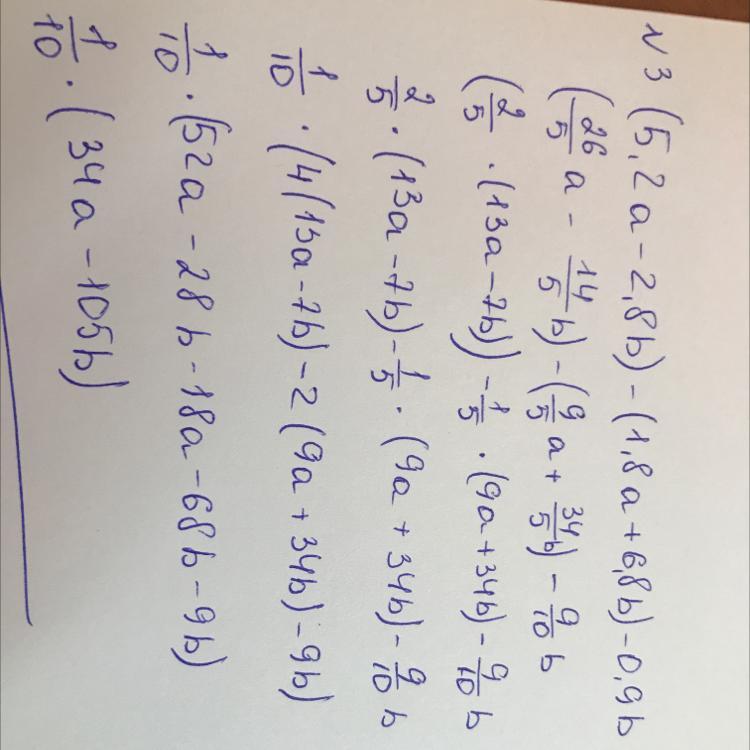 №3 (5,2a-2,8b)-(1,8a+6,8b)-0,9b
(26/5 a - 14/5 b)-(9/5 a + 34/5 b) - 9/10 b
(2/5 · (13a-7b)) - 1/5 · (9a+34b) - 9/10 b
2/5 · (13a-7b) - 1/5 · (9a+34b) - 9/10 b
1/10 · (4(13a-7b)-2(9a+34b)-9b)
1/10 · (52a-28b-18a-68b-9b)
1/10 · (34a-105b)